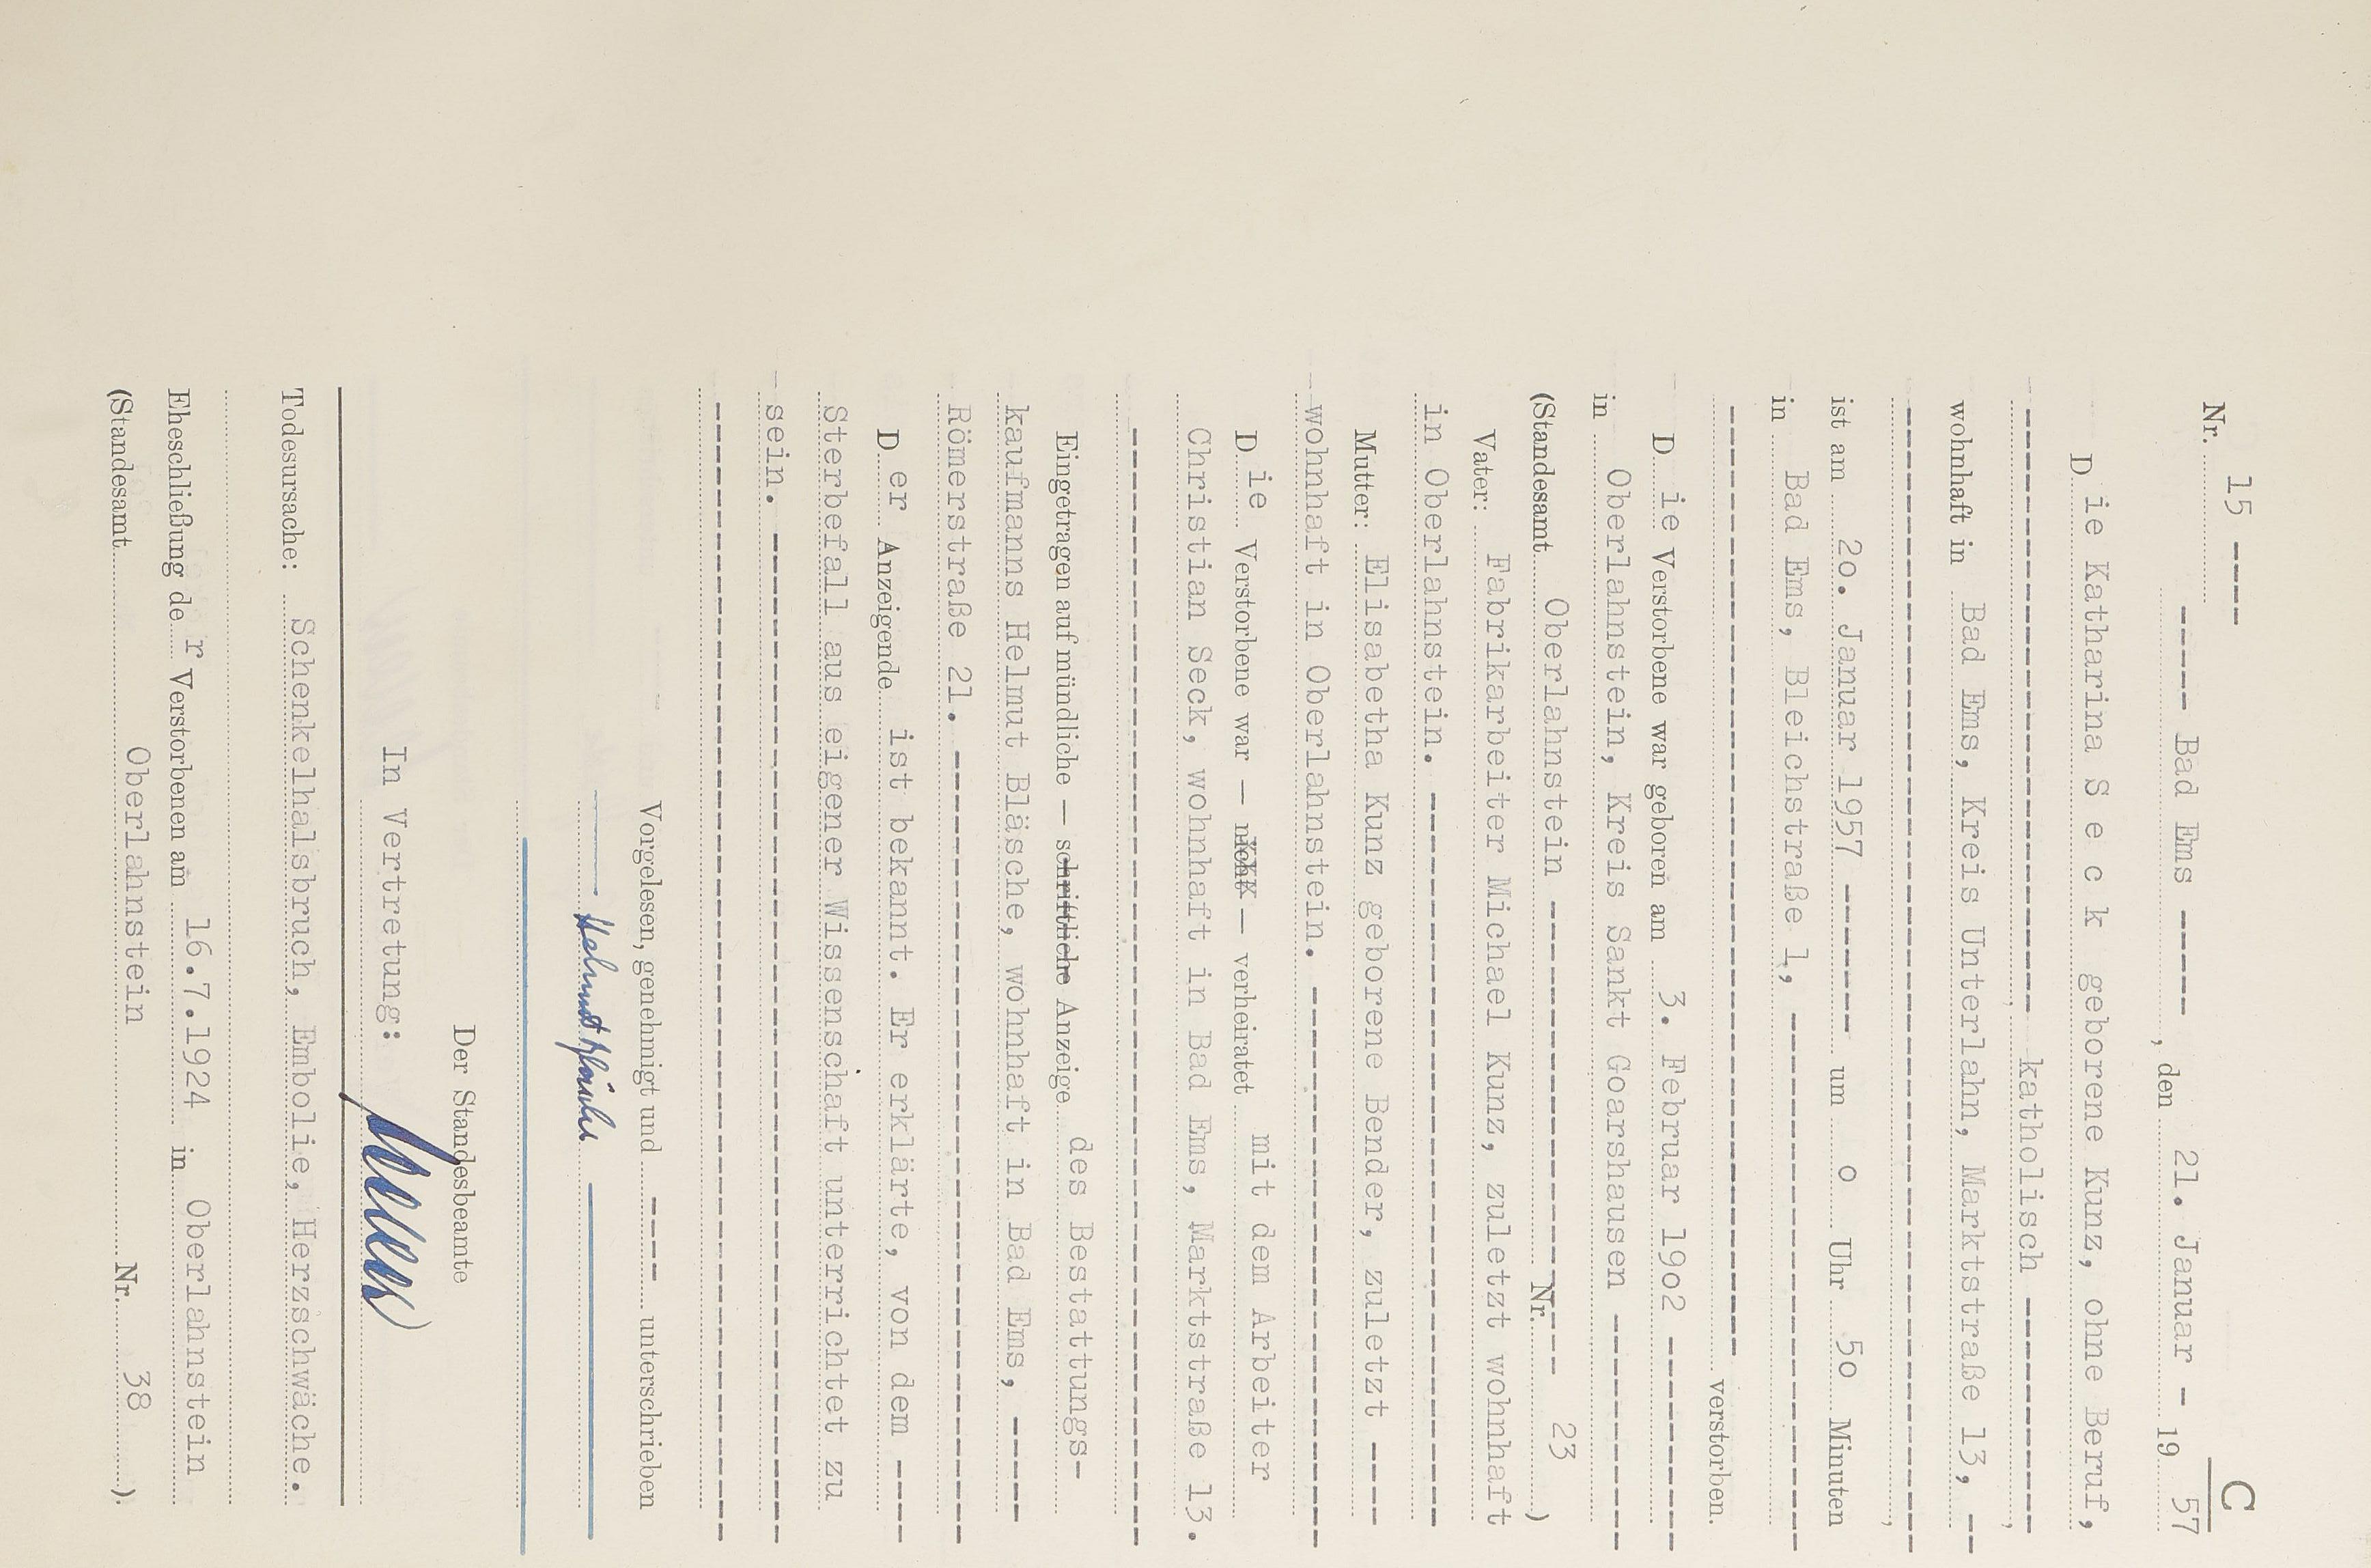 C
Nr. 15 ----
----- Bad Ems -----, den 21. Januar - 19 57
Die Katharina S e c k geborene Kunz, ohne Beruf,
---------- , katholisch ----------
wohnhaft in Bad Ems, Kreis Unterlahn, Marktstraße 13, --
----------,
ist am 20. Januar 1957 ------- um o Uhr 5o Minuten
in Bad Ems, Bleichstraße 1, ----------
---------- verstorben.
Die Verstorbene war geboren am 3. Februar 19o2 ----------
in Oberlahnstein, Kreis Sankt Goarshausen ----------
(Standesamt Oberlahnstein ---------- Nr. --- 23 )
Vater: Fabrikarbeiter Michael Kunz, zuletzt wohnhaft
in Oberlahnstein. ----------
Mutter: Elisabetha Kunz geborene Bender, zuletzt ----
wohnhaft in Oberlahnstein. ----------
Die Verstorbene war — nicht — verheiratet mit dem Arbeiter
Christian Seck, wohnhaft in Bad Ems, Marktstraße 13.
----------
Eingetragen auf mündliche — schriftliche Anzeige des Bestattungs-
kaufmanns Helmut Bläsche, wohnhaft in Bad Ems, -----
Römerstraße 21. ----------
Der Anzeigende ist bekannt. Er erklärte, von dem ----
Sterbefall aus eigener Wissenschaft unterrichtet zu
sein. ----------
----------
Vorgelesen, genehmigt und ---- unterschrieben
Helmut Bläsche
Der Standesbeamte
In Vertretung:
Todesursache: Schenkelhalsbruch, Embolie, Herzschwäche.
Eheschließung der Verstorbenen am 16.7.1924 in Oberlahnstein
(Standesamt Oberlahnstein Nr. 38 ).